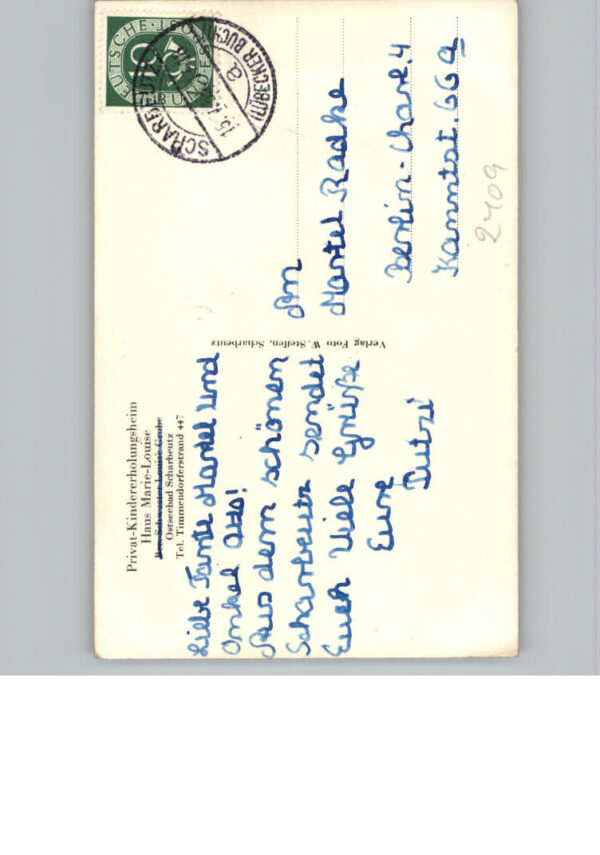 Privat-Kindererholungsheim
Haus Marie-Louise
Bes. Schwester Louise Grube
Ostseebad Scharbeutz
Tel. Timmendorferstrand 447
Liebe Tante Martel und
Onkel Otto!
Aus dem schönen
Scharbeutz sendet
Euch Viele Grüße
Eure
Putzi
Verlag Foto W. Steffen, Scharbeutz
DEUTSCHE BUNDESPOST
SCHARBEUTZ
(LÜBECKER BUCHT)
a
An
Martel Radke
Berlin-Charl. 4
Kanntst. 66a
2409